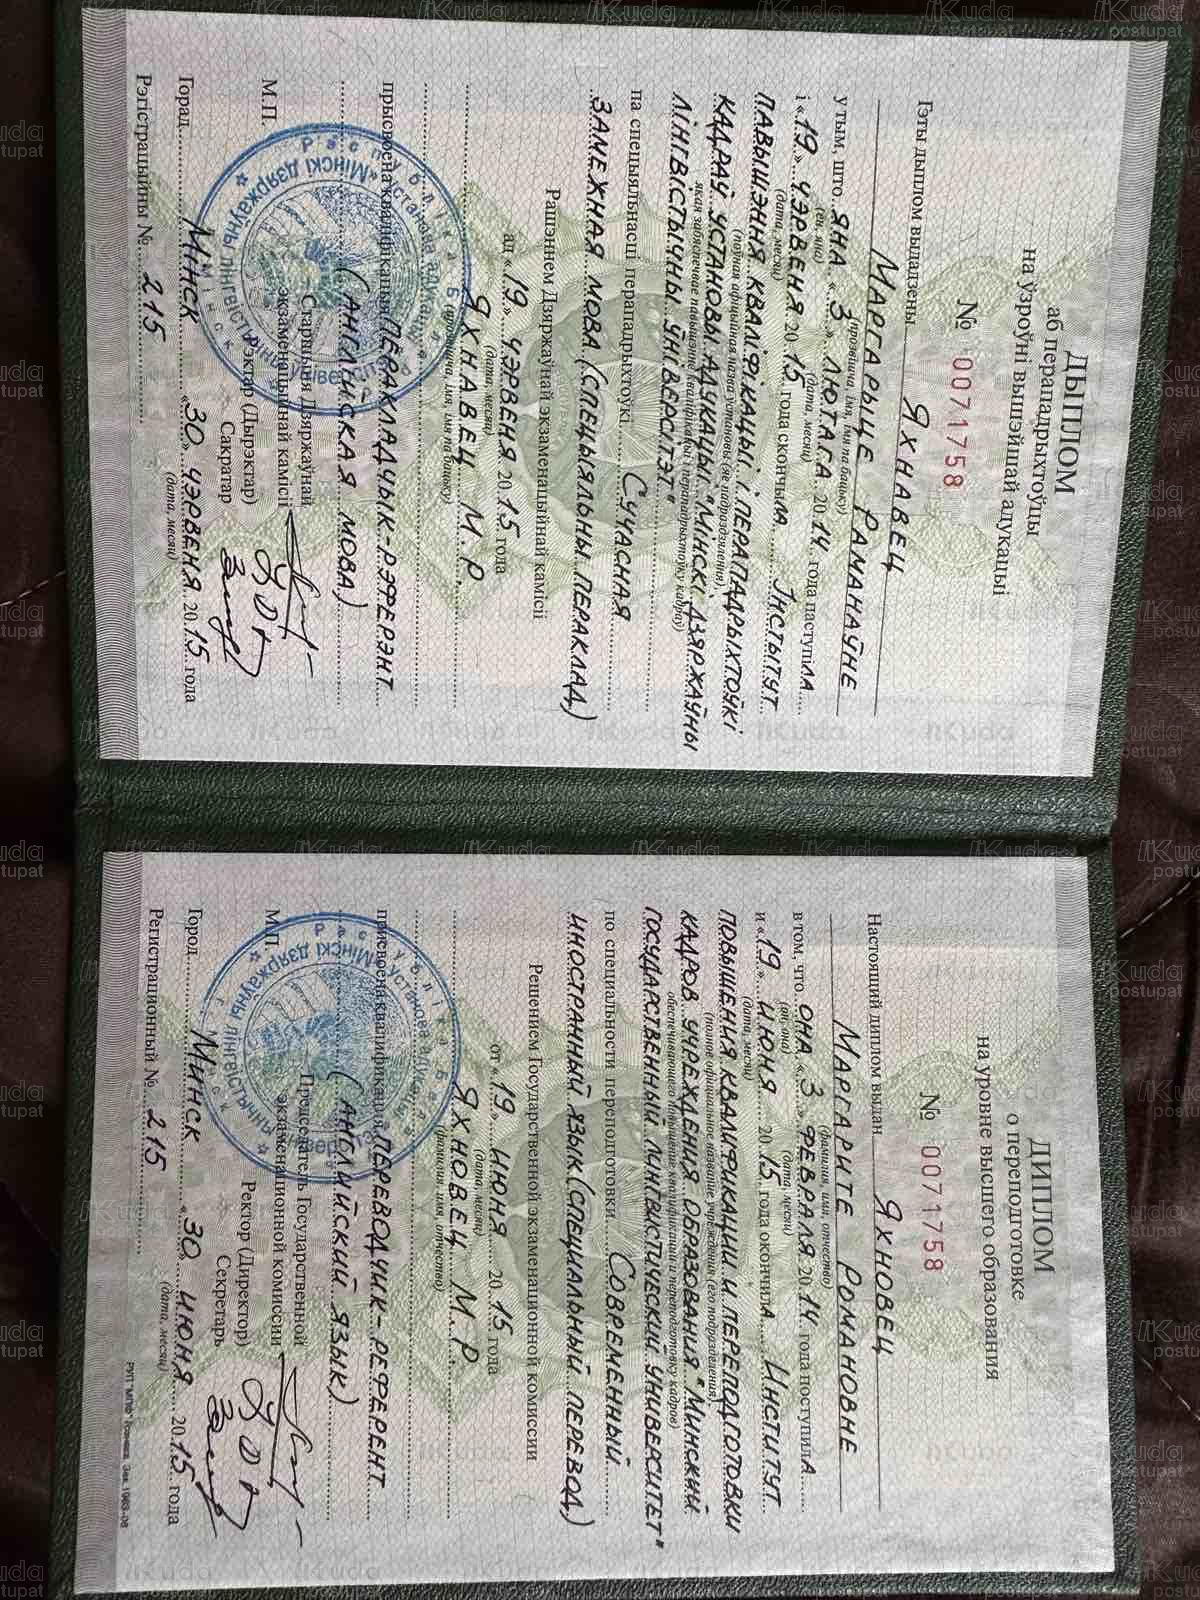 ДЫПЛОМ
аб перападрыхтоўцы
на ўзроўні вышэйшай адукацыі
№ 0071758
Гэты дыплом выдадзены ЯХНАВЕЦ
МАРГАРЫЦЕ РАМАНАЎНЕ
(прозвішча, імя, імя па бацьку)
у тым, што ЯНА «3» ЛЮТАГА 2014 года паступіла
(ён, яна) (дата, месяц)
і «19» ЧЭРВЕНЯ 2015 года скончыла ІНСТЫТУТ
(дата, месяц)
ПАВЫШЭННЯ КВАЛІФІКАЦЫІ І ПЕРАПАДРЫХТОЎКІ
(поўная афіцыйная назва ўстановы (яе падраздзялення),
КАДРАЎ УСТАНОВЫ АДУКАЦЫІ "МІНСКІ ДЗЯРЖАЎНЫ
якая забяспечвае павышэнне кваліфікацыі і перападрыхтоўку кадраў)
ЛІНГВІСТЫЧНЫ ЎНІВЕРСІТЭТ"
па спецыяльнасці перападрыхтоўкі СУЧАСНАЯ
ЗАМЕЖНАЯ МОВА (СПЕЦЫЯЛЬНЫ ПЕРАКЛАД)
Рашэннем Дзяржаўнай экзаменацыйнай камісіі
ад «19» ЧЭРВЕНЯ 2015 года
(дата, месяц)
ЯХНАВЕЦ М. Р.
(прозвішча, імя, імя па бацьку)
прысвоена кваліфікацыя ПЕРАКЛАДЧЫК-РЭФЕРЭНТ
(АНГЛІЙСКАЯ МОВА)
Старшыня Дзяржаўнай
экзаменацыйнай камісіі
М.П. Рэктар (Дырэктар)
Сакратар
Горад МІНСК «30» ЧЭРВЕНЯ 2015 года
(дата, месяц)
Рэгістрацыйны № 215
ДИПЛОМ
о переподготовке
на уровне высшего образования
№ 0071758
Настоящий диплом выдан ЯХНОВЕЦ
МАРГАРИТЕ РОМАНОВНЕ
(фамилия, имя, отчество)
в том, что ОНА «3» ФЕВРАЛЯ 2014 года поступила
(он, она) (дата, месяц)
и «19» ИЮНЯ 2015 года окончила ИНСТИТУТ
(дата, месяц)
ПОВЫШЕНИЯ КВАЛИФИКАЦИИ И ПЕРЕПОДГОТОВКИ
(полное официальное название учреждения (его подразделения),
КАДРОВ УЧРЕЖДЕНИЯ ОБРАЗОВАНИЯ "МИНСКИЙ
обеспечивающего повышение квалификации и переподготовку кадров)
ГОСУДАРСТВЕННЫЙ ЛИНГВИСТИЧЕСКИЙ УНИВЕРСИТЕТ"
по специальности переподготовки СОВРЕМЕННЫЙ
ИНОСТРАННЫЙ ЯЗЫК (СПЕЦИАЛЬНЫЙ ПЕРЕВОД)
Решением Государственной экзаменационной комиссии
от «19» ИЮНЯ 2015 года
(дата, месяц)
ЯХНОВЕЦ М. Р.
(фамилия, имя, отчество)
присвоена квалификация ПЕРЕВОДЧИК-РЕФЕРЕНТ
(АНГЛИЙСКИЙ ЯЗЫК)
Председатель Государственной
экзаменационной комиссии
М.П. Ректор (Директор)
Секретарь
Город МИНСК «30» ИЮНЯ 2015 года
(дата, месяц)
Регистрационный № 215